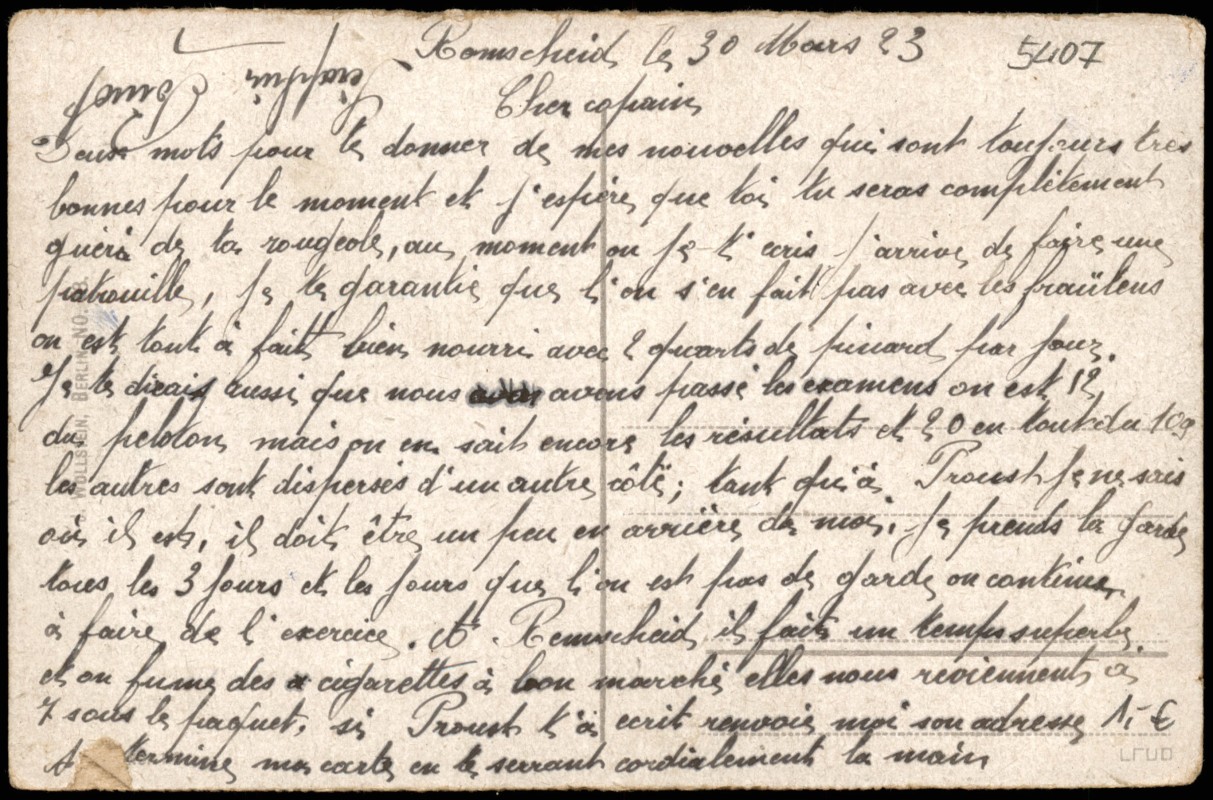 Remscheid le 30 Mars 23
5407
Cher copain
Deux mots pour te donner de mes nouvelles qui sont toujours très
bonnes pour le moment et j'espère que toi tu seras complètement
guéri de ta rougeole, au moment ou je t'ecris j'arrive de faire une
patrouille, je te garantie que l'on s'en fait pas avec les fraülens
on est tout à fait bien nourri avec 2 quarts de pinard par jour.
Je te dirais aussi que nous avons passé les examens on est 12
du peloton mais on en sait encore les résultats et 20 en tout du 109
les autres sont dispersés d'un autre côté; tant qu'à Proust je ne sais
où il est, il doit être un peu en arrière de moi. Je prends la garde
tous les 3 jours et les jours que l'on est pas de garde on continue
à faire de l'exercice. A Remscheid il fait un temps superbe
et on fume des cigarettes à bon marché elles nous reviennent à
7 sous le paquet, si Proust t'à ecrit renvoie moi son adresse
1,- €
termine ma carte en te serrant cordialement la main
WOLLSTEIN, BERLIN. NO.